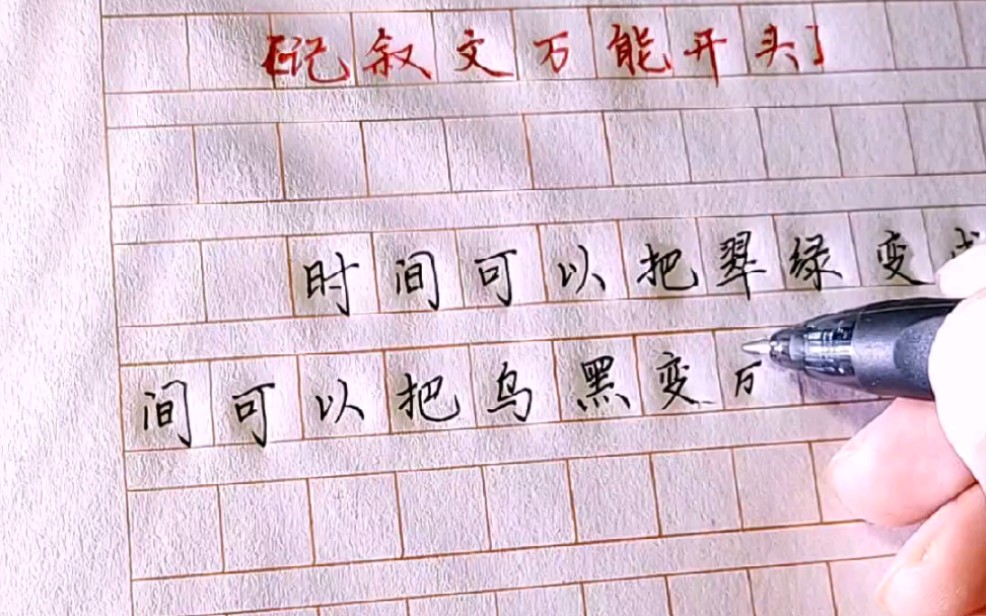 【记叙文万能开头】
时间可以把翠绿变
间可以把乌黑变